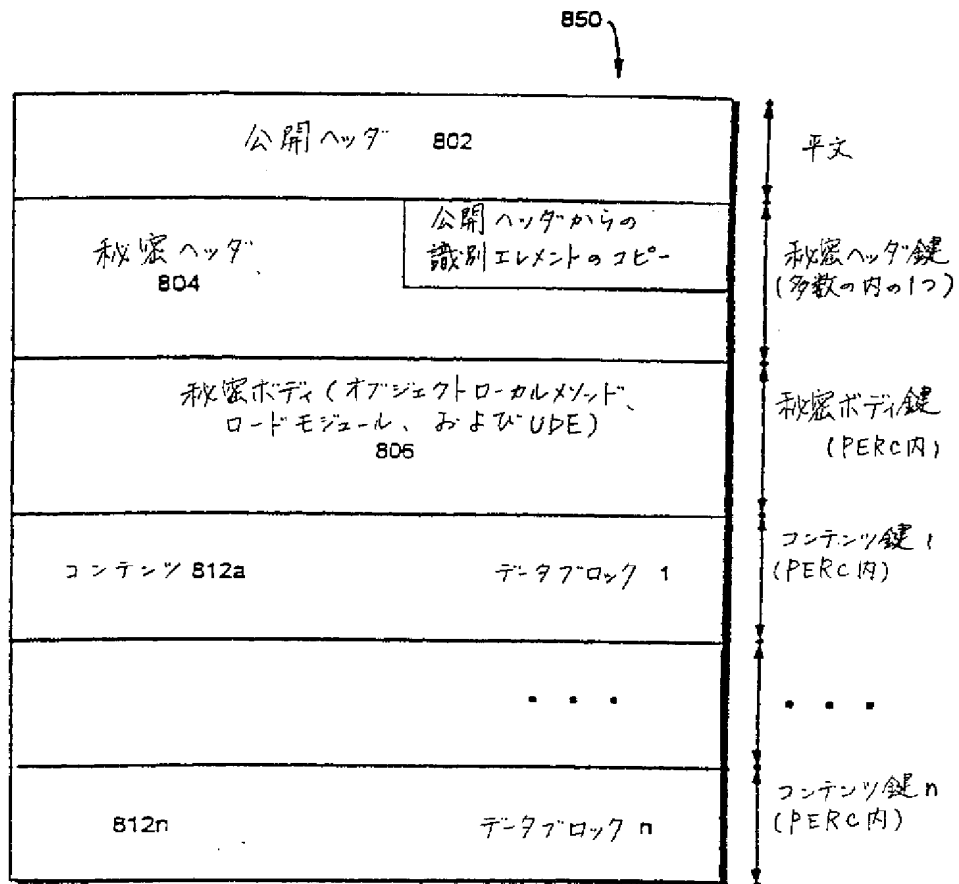 850
公開ヘッダ 802
平文
秘密ヘッダ
804
公開ヘッダからの
識別エレメントのコピー
秘密ヘッダ鍵
(多数の内の1つ)
秘密ボディ(オブジェクトローカルメソッド、
ロードモジュール、およびUDE)
806
秘密ボディ鍵
(PERC内)
コンテンツ 812a データブロック 1
コンテンツ鍵 1
(PERC内)
. . .
. . .
812n データブロック n
コンテンツ鍵 n
(PERC内)